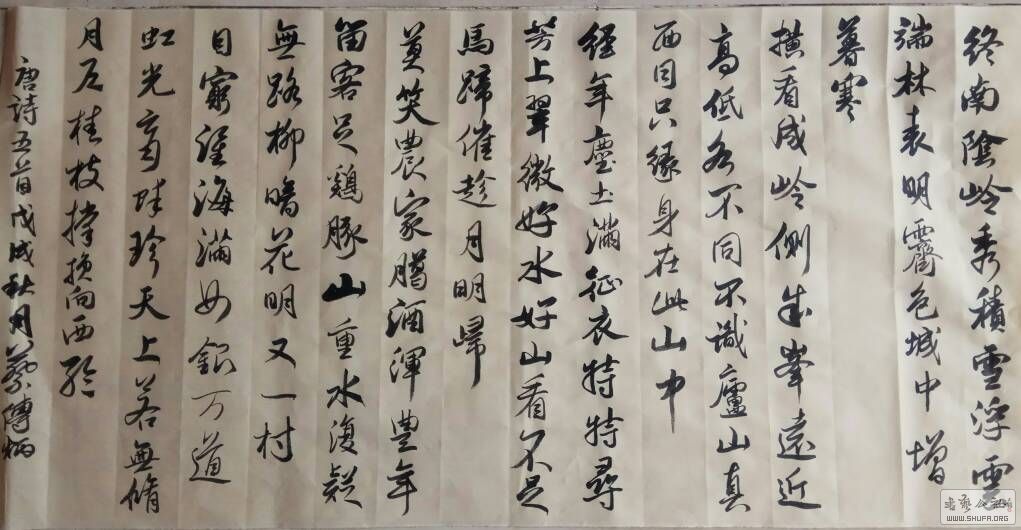 終南陰岭秀積雪浮雲
端林表明霽色城中增
暮寒
橫看成岭側成峯遠近
高低各不同不識廬山真
面目只緣身在此山中
經年塵土滿征衣特特尋
芳上翠微好水好山看不足
馬蹄催趁月明歸
莫笑農家臘酒渾豊年
留客足鷄豚山重水復疑
無路柳暗花明又一村
目窮淮海滿如銀万道
虹光育蚌珍天上若無脩
月户桂枝撑損向西輪
唐詩五首戊戌秋月蔡傳炳
WWW.SHUFA.ORG